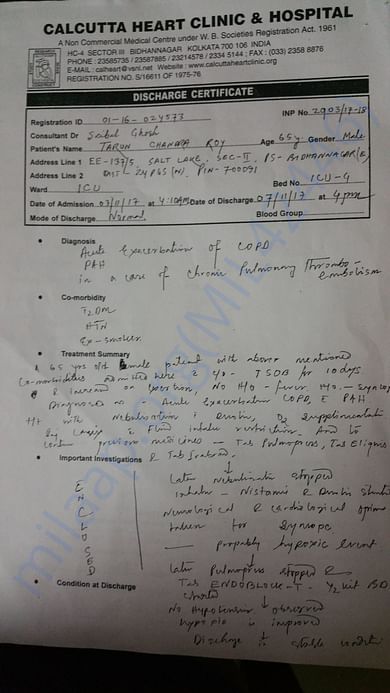 CALCUTTA HEART CLINIC & HOSPITAL
A Non Commercial Medical Centre under W. B. Societies Registration Act. 1961
HC-4 SECTOR III BIDHANNAGAR KOLKATA 700 106 INDIA
PHONE : 23585735 / 23587885 / 23214578 / 2334 5144 ; FAX : (033) 2358 8876
E-MAIL : calheart@vsnl.net Website : www.calcuttaheartclinic.org
REGISTRATION NO. S/16611 OF 1975-76
DISCHARGE CERTIFICATE
Registration ID 01-16-024573 INP No 2903/17-18
Consultant Dr Saibal Ghosh
Patient's Name TARUN CHANDRA ROY Age 65y Gender Male
Address Line 1 EE-137/5, SALT LAKE, SEC-II, PS-BIDHANNAGAR(E)
Address Line 2 DIST-24PGS(N), PIN-700091
Ward ICU Bed No. ICU-9
Date of Admission 03/11/17 at 4:10AM Date of Discharge 07/11/17 at 4pm
Mode of Discharge Normal Blood Group
Diagnosis
Acute Exacerbation of COPD
PAH
in a case of chronic Pulmonary Thrombo-
embolism
Co-morbidity
T2DM
HTN
Ex-smoker
Treatment Summary
A 65 yrs old male patient with above mentioned
Co-morbidities admitted here c/o - SOB for 10 days
& increased on exertion. No H/o - fever H/o - syncope
Diagnosed as - Acute Exacerbation COPD, PAH
with Nebulisation, O2 supplementation
Fluid intake restriction. And to
continue previous medicines - Tab Pulmopres, Tab Eliquis
Important Investigations & Tab
ENCLOSED
Later Nebulisation stopped
Inhaler -
Neurological & cardiological opinion
taken for syncope
probably hypoxic event
Later Pulmopres stopped &
Tab ENDOBLOCK-T 1/2 BD
started
No Hypotension observed
Hypoxia is improved
Condition at Discharge
Discharge in stable condition
milaap